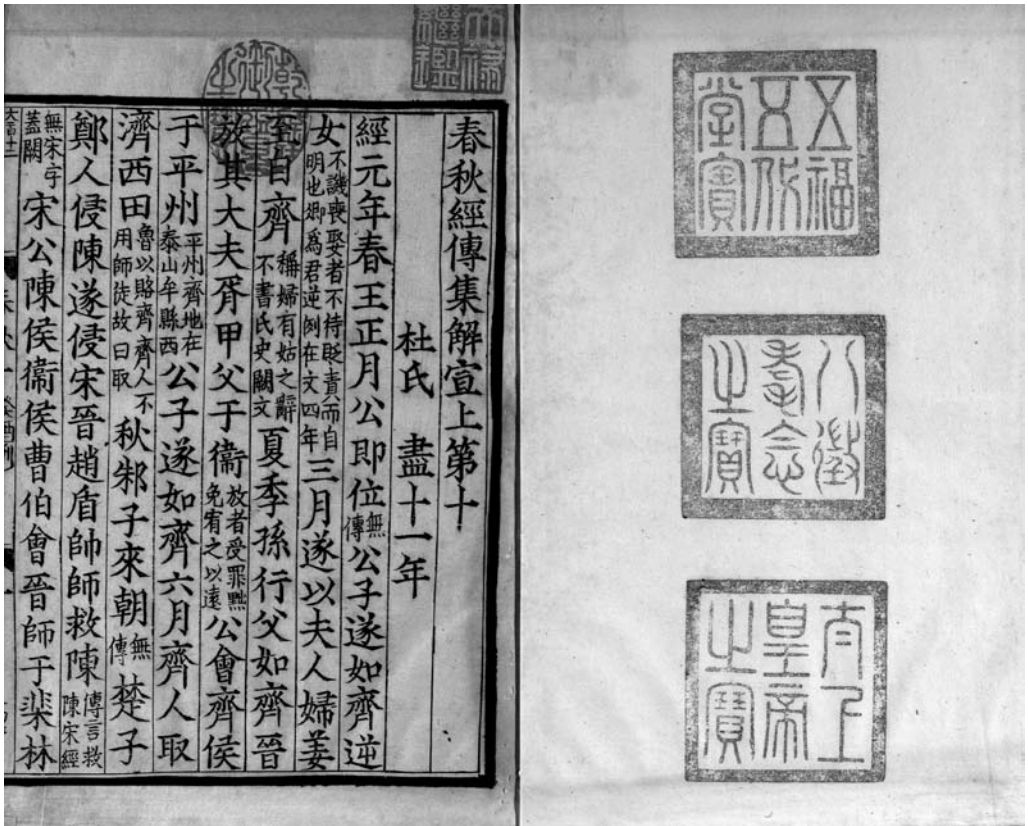 五福
五代
堂寶
八徵
耄念
之寶
太上
皇帝
之寶
天祿
繼鑑
乾隆御覽之寶
春秋經傳集解宣上第十
杜氏 盡十一年
經元年春王正月公即位無傳公子遂如齊逆
女不譏喪娶者不待貶責而自明也卿爲君逆例在文四年三月遂以夫人婦姜
至自齊稱婦有姑之辭不書氏史闕文夏季孫行父如齊晉
放其大夫胥甲父于衞放者受罪黜免宥之以遠公會齊侯
于平州平州齊地在泰山牟縣西公子遂如齊六月齊人取
濟西田魯以賂齊齊人不用師徒故曰取秋邾子來朝無傳楚子
鄭人侵陳遂侵宋晉趙盾帥師救陳傳言救陳宋經
無宋字蓋闕宋公陳侯衞侯曹伯會晉師于棐林